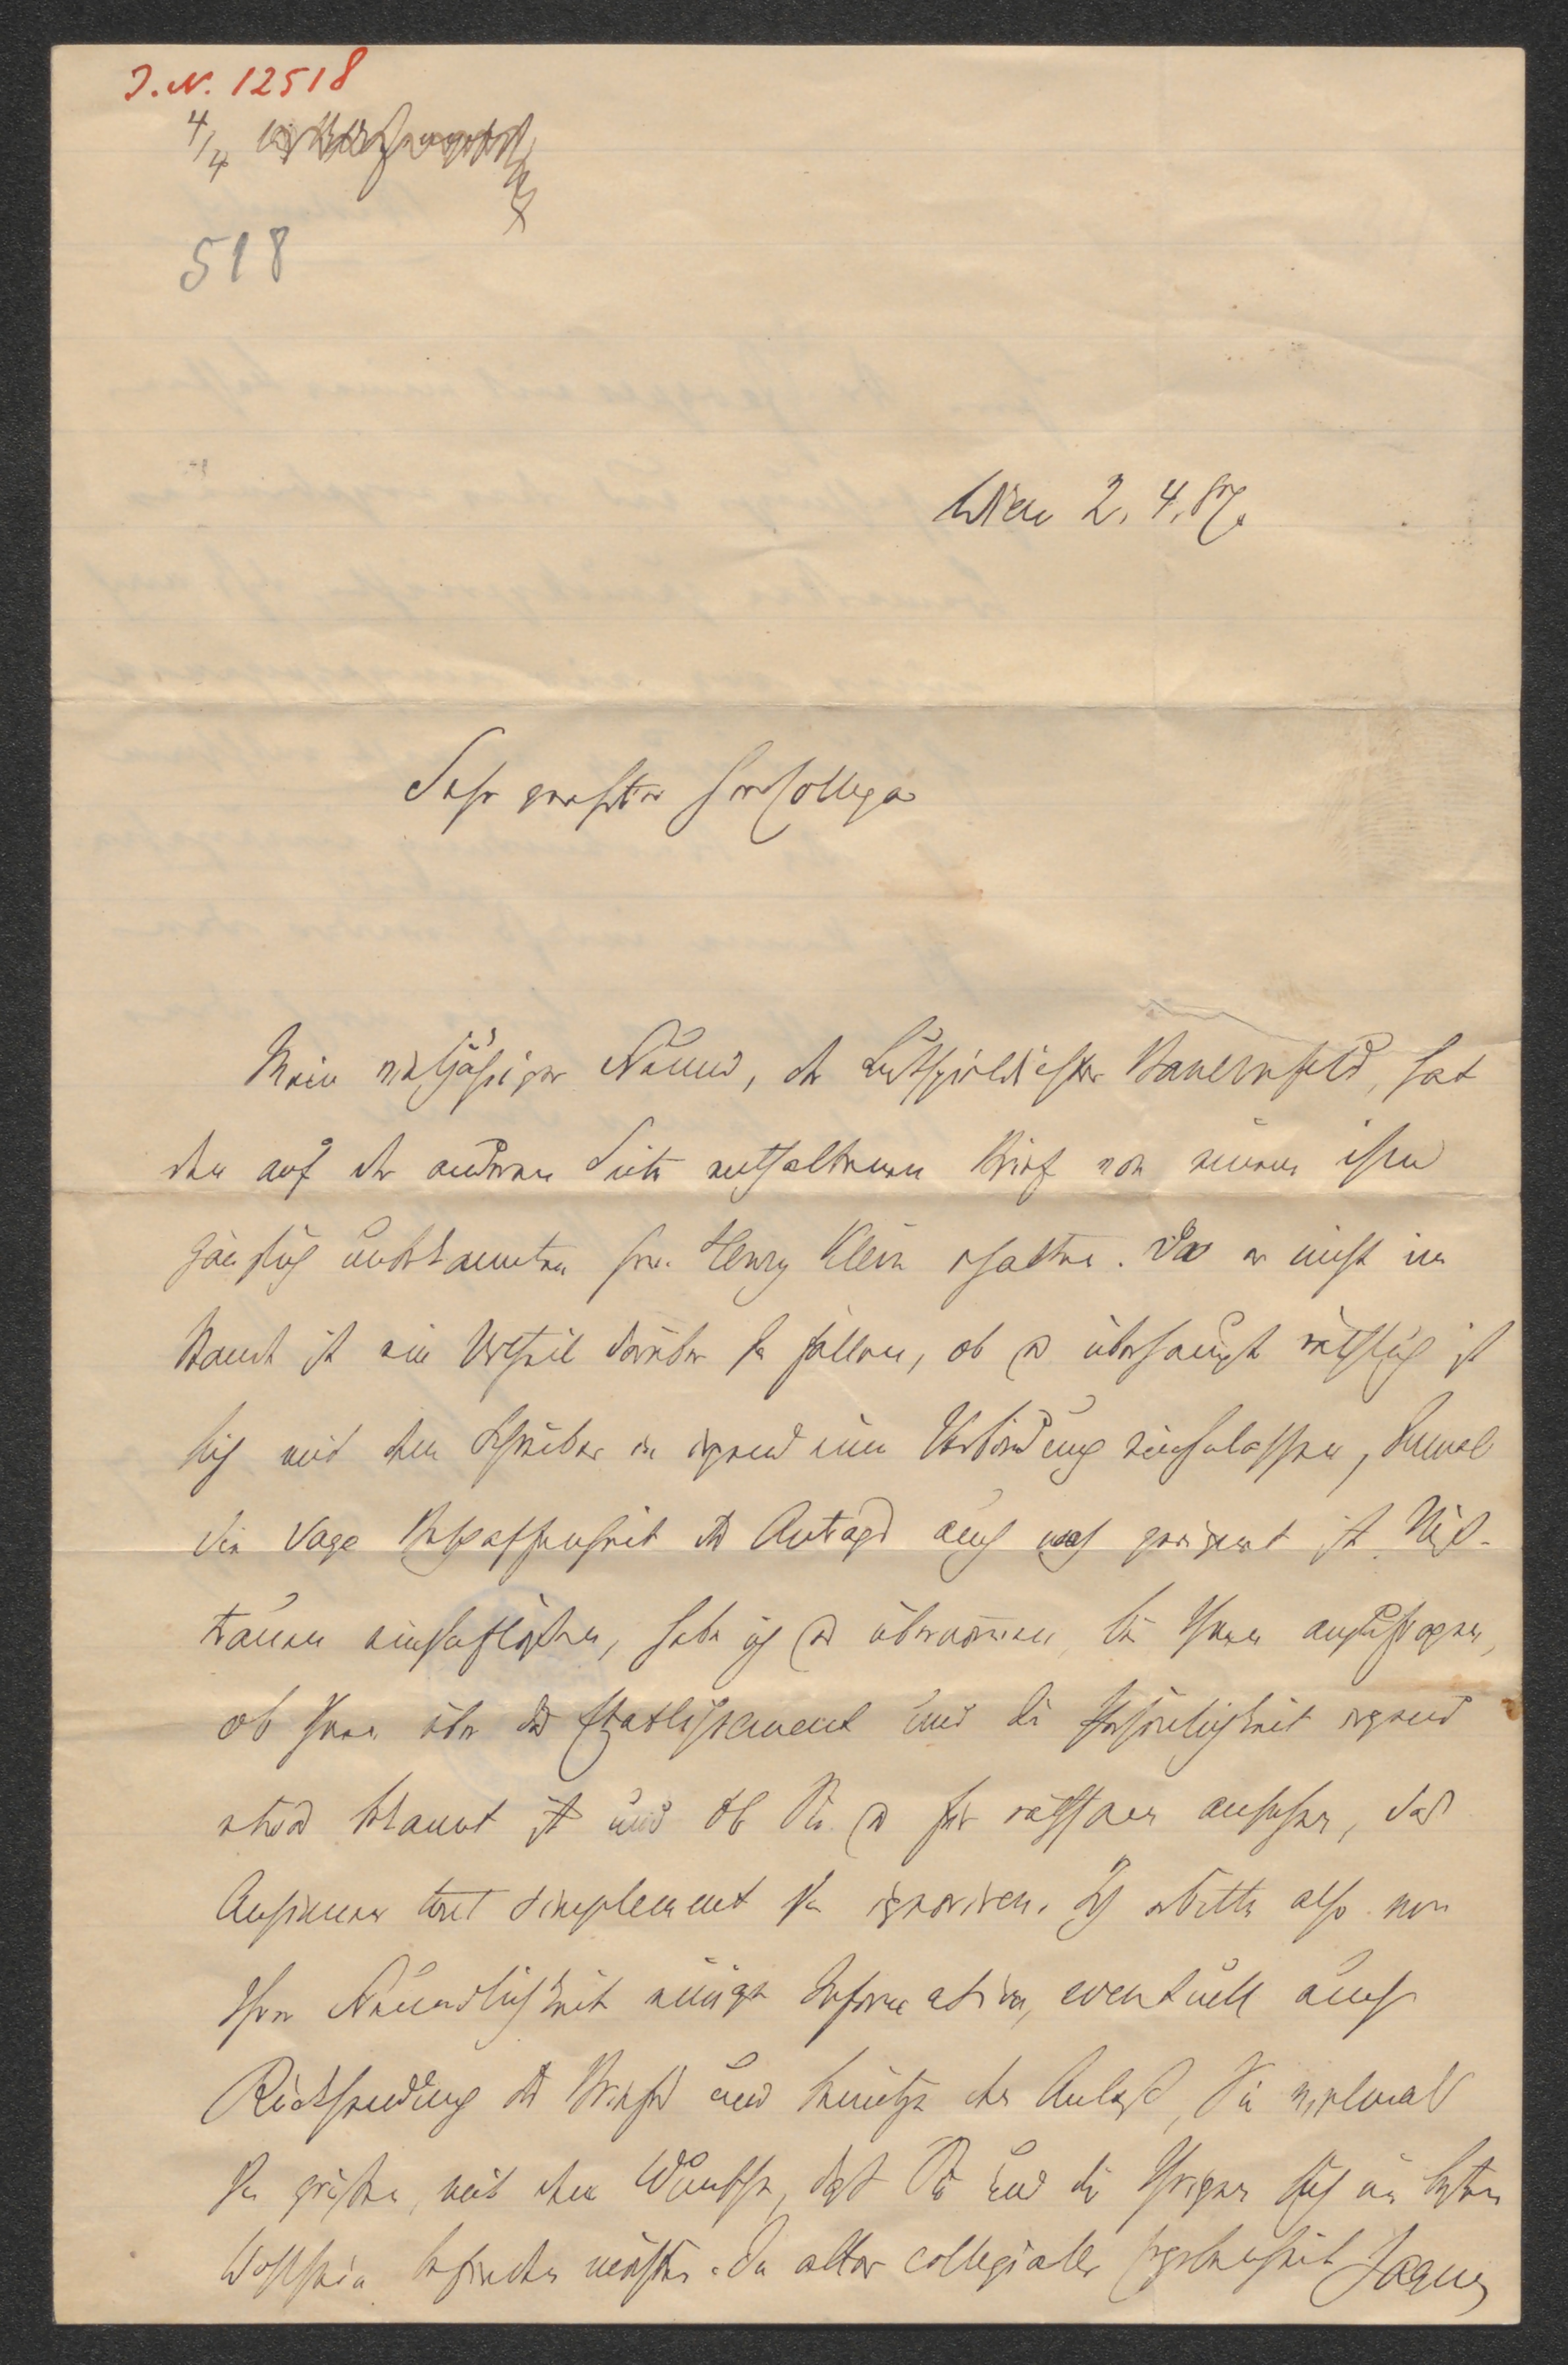 J. N. 12518
4/4
518
Wien 2. 4. 87.
Sehr geehrter Herr Collega
Mein vieljähriger Freund, der Lustspieldichter Bauernfeld, hat
den auf der anderen Seite enthaltenen Brief von einem ihm
gänzlich unbekannten Hrn. Henry Klein erhalten. Da er nicht im
Stande ist ein Urtheil darüber zu fällen, ob es überhaupt räthlich ist
sich mit dem Schreiber in irgend eine Verbindung einzulassen, zumal
die vage Beschaffenheit des Antrags auch noch geeignet ist Miß-
trauen einzuflößen, habe ich es übernommen bei Ihnen anzufragen,
ob Ihnen über das Etablissement und die Persönlichkeit irgend
etwas bekannt ist und ob Sie es für rathsam ansehen, das
Ansinnen tout simplement zu ignoriren. Ich erbitte also von
Ihrer Freundlichkeit einige Information, eventuell auch
Rücksendung des Briefes und benütze den Anlaß, Sie vielmals
zu grüßen, mit dem Wunsche, daß Sie und die Ihrigen sich im besten
Wohlsein befinden mögen. In alter collegialer Ergebenheit Jaques